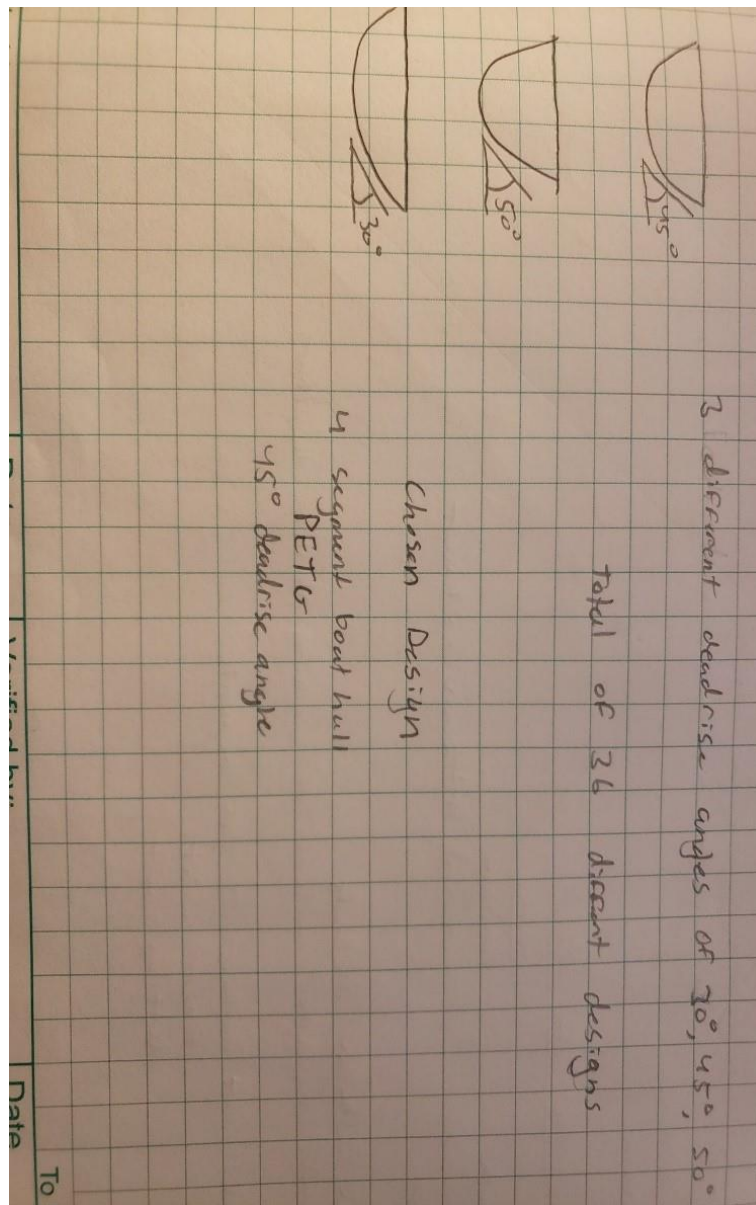 3 different deadrise angles of 30°, 45°, 50°
Total of 36 diffent designs
Chosen Design
4 segment boat hull
PETG
45° deadrise angle
45°
50°
30°
To
Date